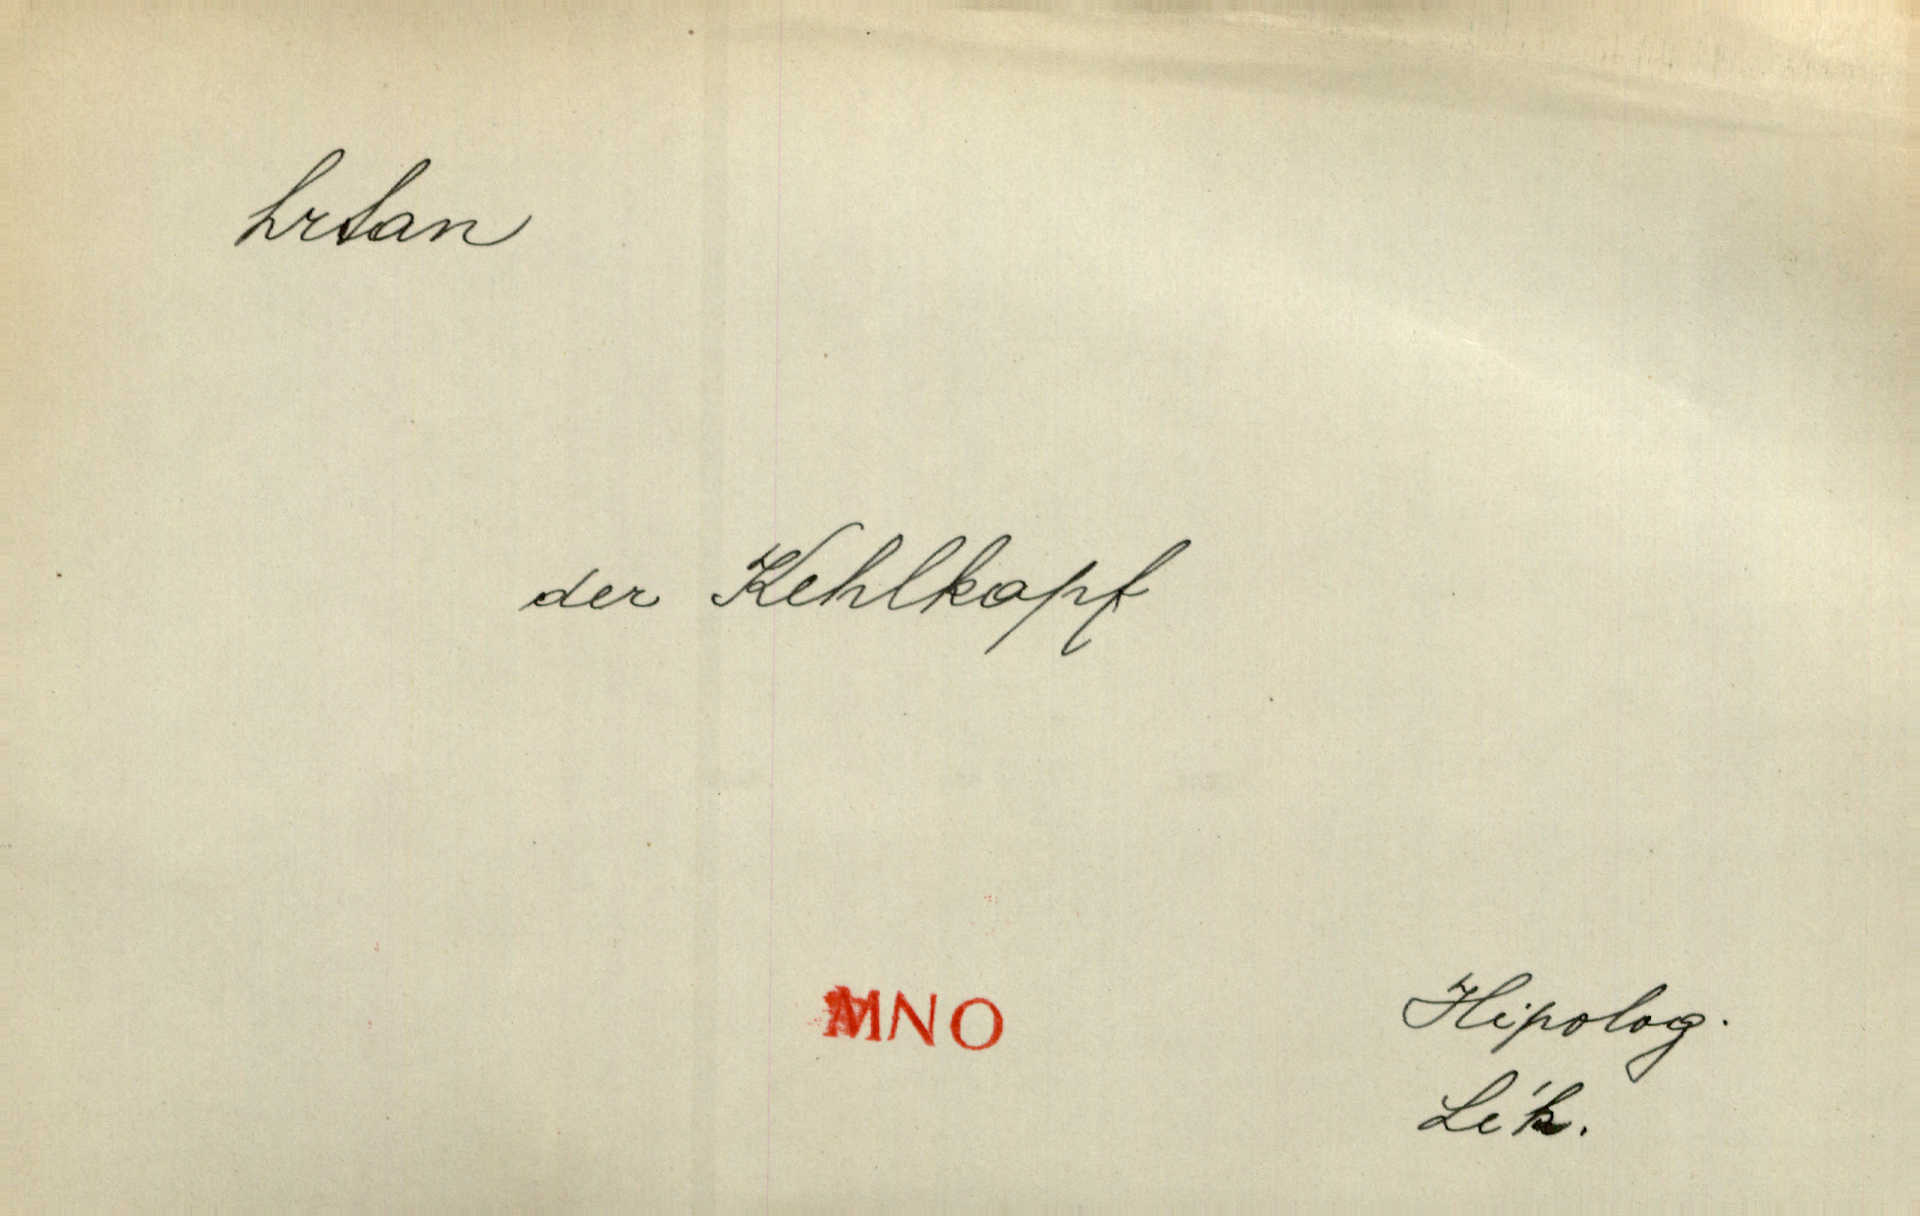 hrtan
der Kehlkopf
MNO
Hipolog.
Lék.